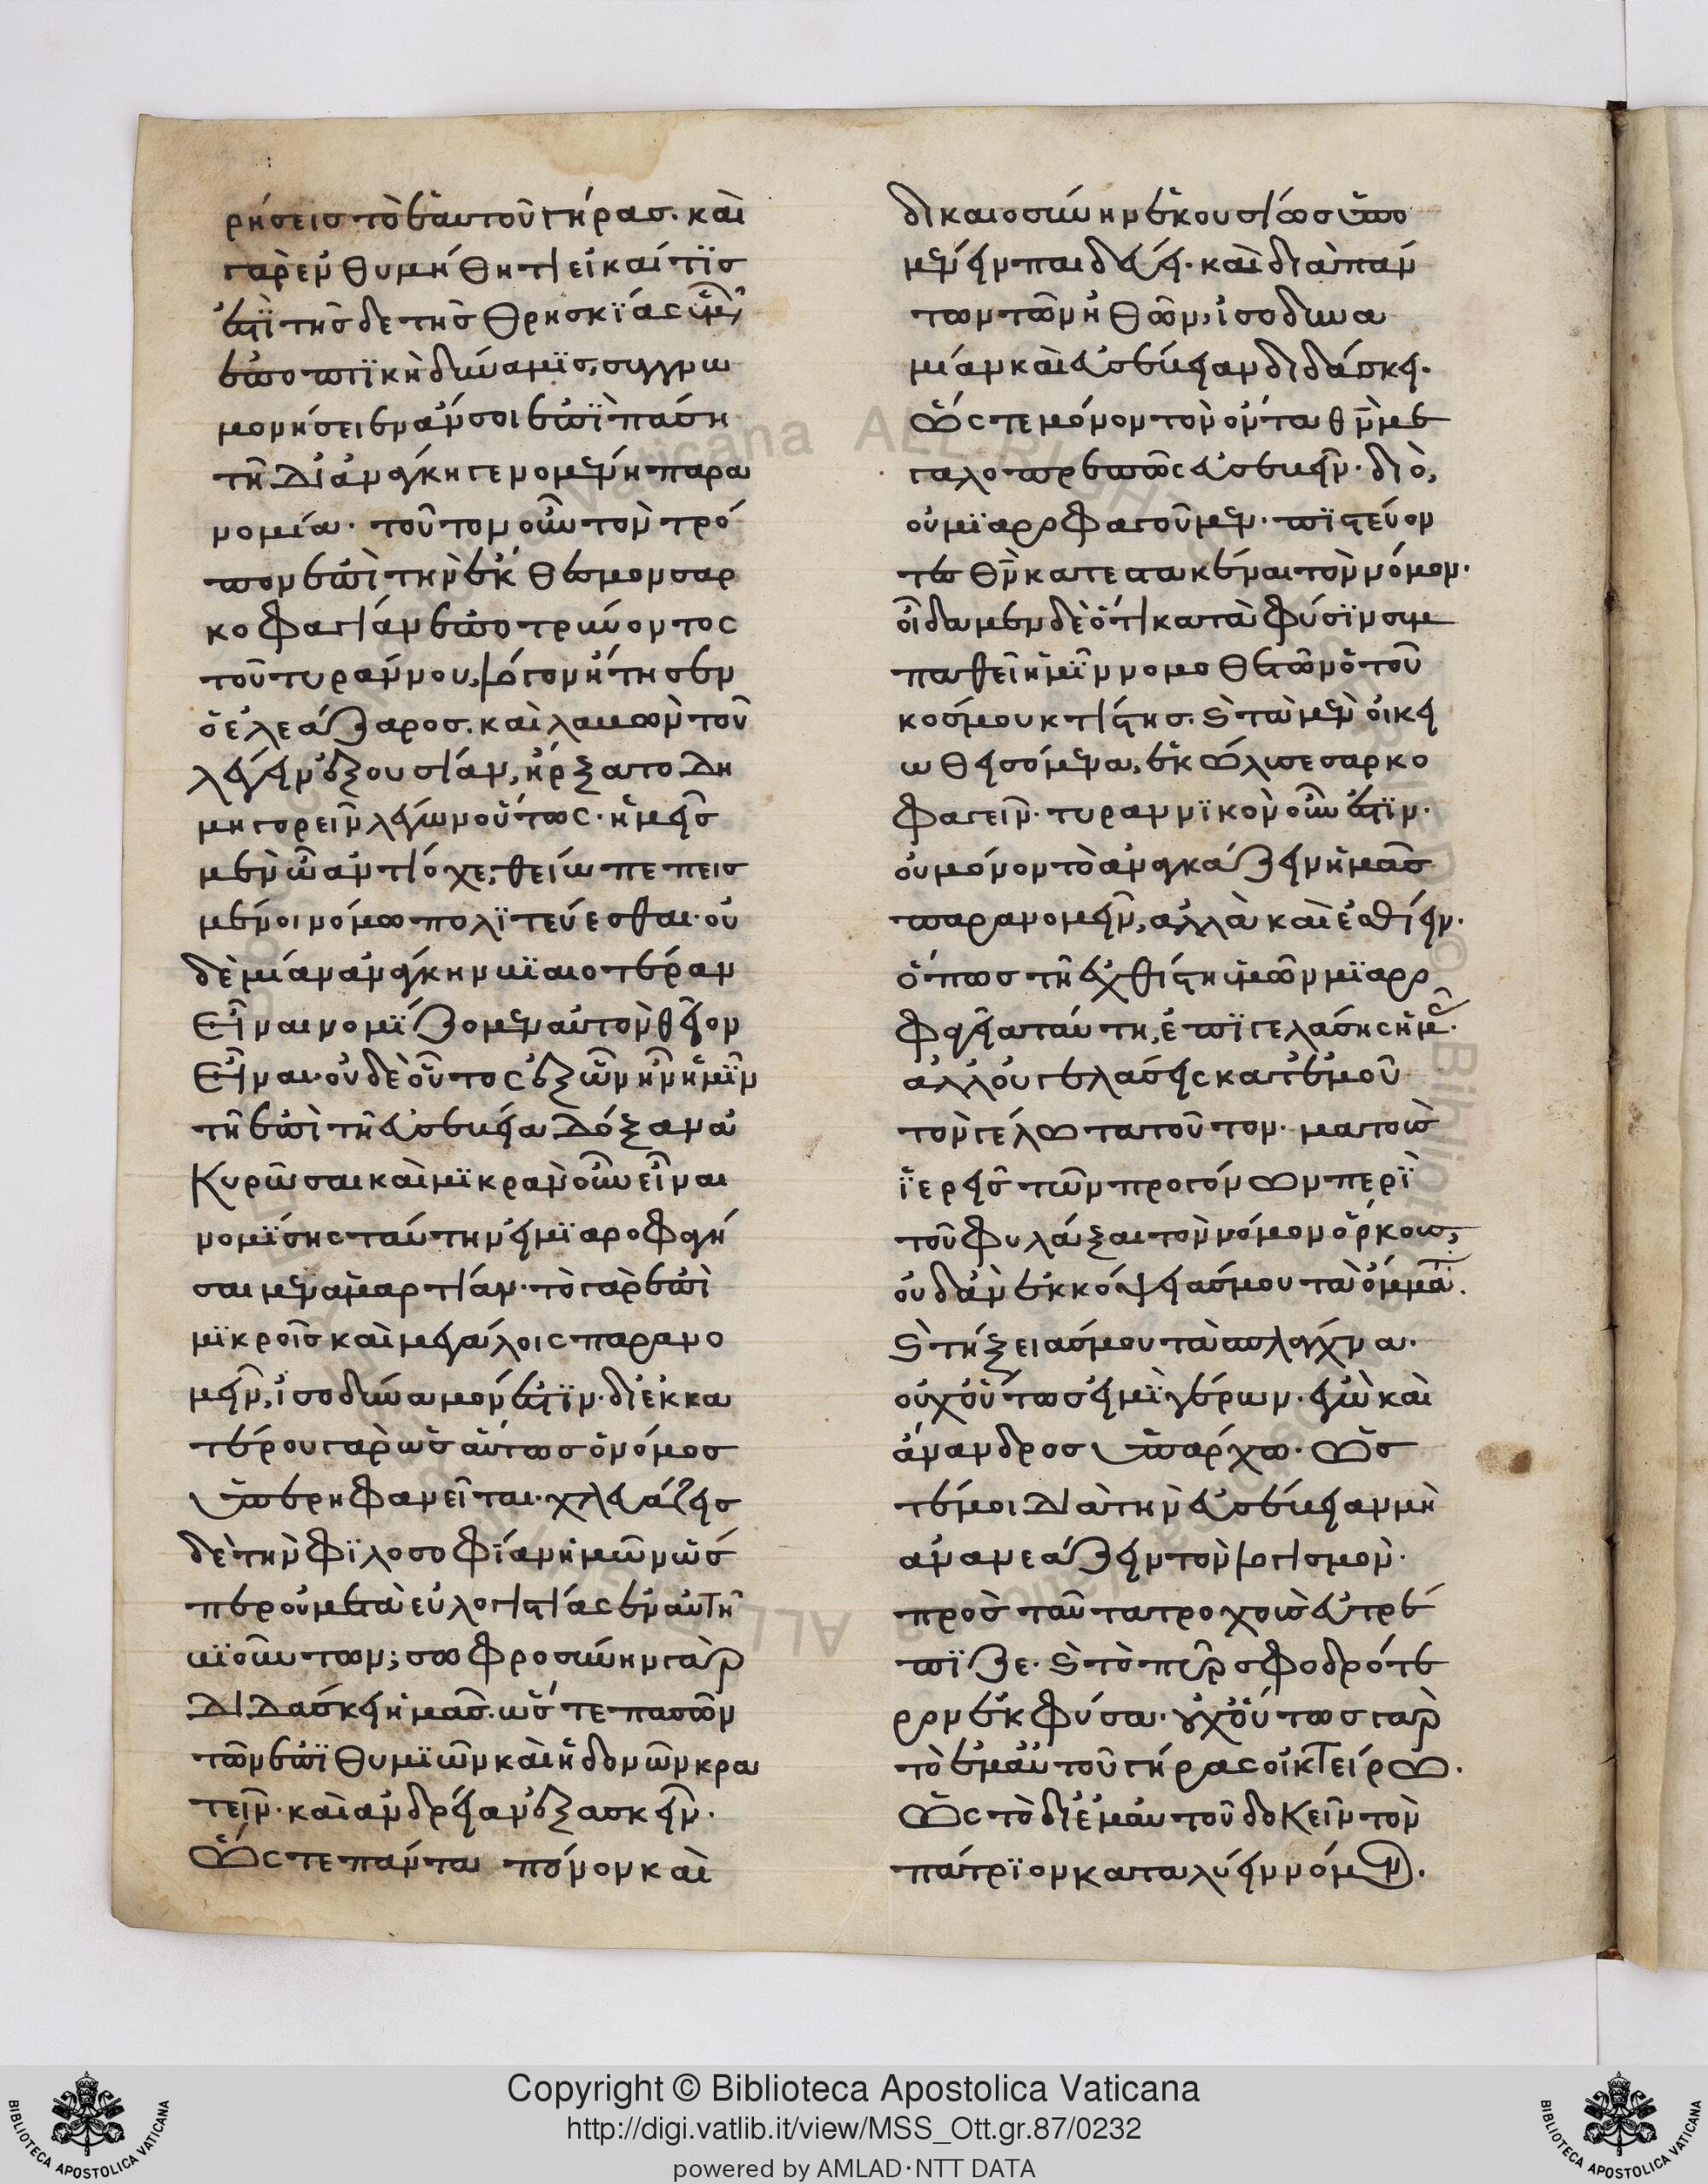 ρήσεις τὸ ἑαυτοῦ γήρας. καὶ
γὰρ ἐνθυμήθητι εἰ καί τίς
ἐστὶ τῆσδε τῆς θρησκίας ὑμῶ
ἐποπτικὴ δύναμις, συγγνω
μονήσειεν ἄν σοι ἐπὶ πάση
τῆ δι' ἀνάγκη γενομένη παρα
νομία. τοῦτον οὖν τὸν τρό
πον ἐπὶ τὴν ἔκθεσμον σαρ
κοφαγίαν ἐποτρύνοντος
τοῦ τυράννου, λόγον ἤτησεν
ὁ ἐλεάζαρος. καὶ λαβὼν τοῦ
λέγειν ἐξουσίαν, ἤρξατο δη
μηγορεῖν λέγων οὕτως. ἡμεῖς
μὲν ὦ ἀντίοχε, θείω πεπεισ
μένοι νόμω πολιτεύεσθαι. οὐ
δὲ μίαν ἀνάγκην βιαιοτέραν
εἶναι νομίζομεν αὐτὸν θεῖον
εἶναι. οὐδὲ οὕτος ἐξὼν ἦν ἡμῖν
τὴν ἐπὶ τῆ εὐσεβεία δόξαν ἀ
κυρῶσαι καὶ μικρὰν οὖν εἶναι
νομίσης ταύτην εἰ μιαροφαγή
σαιμεν ἁμαρτίαν. τὸ γὰρ ἐπὶ
μικροῖς καὶ μεγάλοις παρανο
μεῖν, ἰσοδύναμόν ἐστιν. δι' ἑκκα
τέρου γὰρ ὡς αὕτως ὁ νόμος
ὑπερηφανεῖται. χλευάζεις
δὲ τὴν φιλοσοφίαν ἡμῶν ὥσ
περ οὐ μετὰ εὐλογιστίας ἐν αὐτῆ
βιούντων; σωφροσύνην γὰρ
διδάσκει ἡμᾶς. ὥστε πασῶν
τῶν ἐπιθυμιῶν καὶ ἡδονῶν κρα
τεῖν. καὶ ἀνδρείαν ἐξασκεῖν.
ὥστε πάντα πόνον καὶ
δικαιοσύνην ἑκουσίως ὑπο
μένειν παιδεύει. καὶ διὰ πάν
των τῶν ἠθῶν, ἰσοδυνα
μίαν καὶ εὐσέβειαν διδάσκει.
ὥστε μόνον τὸν ὄντα θν μὲ
γαλοπρεπῶς εὐσεβεῖν. διὸ,
οὐ μιαροφαγοῦμεν. πιστεύον
τε θν κατεστακέναι τὸν νόμον.
οἴδαμεν δὲ ὅτι κατὰ φύσιν συμ
παθεῖ ἡμῖν νομοθετῶν ὁ τοῦ
κόσμου κτίστης. καὶ τὰ μὲν οἰκει
ωθησόμενα, ἐκώλυσε σαρκο
φαγεῖν. τυραννικὸν οὖν ἐστιν.
οὐ μόνον τὸ ἀναγκάζειν ἡμᾶς
παρανομεῖν, ἀλλὰ καὶ ἐσθίειν.
ὅπως τῆ ἐχθίστη ἡμῶν μιαρο
φαγία ταύτη, ἐπιγελάσης ἡμῖ.
ἀλλ' οὐ γελάσεις κατ' ἐμοῦ
τὸν γέλωτα τοῦτον. ματοὺς
ἱερεῖς τῶν προγόνων περὶ
τοῦ φυλάξαι τὸν νόμον ὅρκους,
οὐδ' ἂν ἐκκόψειας μου τὰ ὄμματ.
καὶ τήξειας μου τὰ σπλάγχνα.
οὐχ οὕτως εἰμὶ γέρων. ἐγὼ καὶ
ἄνανδρος ὑπάρχω. ὥσ
τέ μοι διὰ τὴν εὐσέβειαν μὴ
ἀνανεάζειν τὸν λογισμόν.
πρὸς ταῦτα τροχοὺς εὐτρέ
πιζε. καὶ τὸ πῦρ σφοδρότε
ρον ἐκφύσα. οὐχ οὕτως γὰρ
τὸ ἐμαυτοῦ γήρας οἰκτείρω.
ὥς τὸ δι' ἐμαυτοῦ δοκεῖν τὸν
πάτριον καταλύειν νόμον.
Copyright © Biblioteca Apostolica Vaticana
http://digi.vatlib.it/view/MSS_Ott.gr.87/0232
powered by AMLAD·NTT DATA
BIBLIOTECA APOSTOLICA VATICANA
BIBLIOTECA APOSTOLICA VATICANA